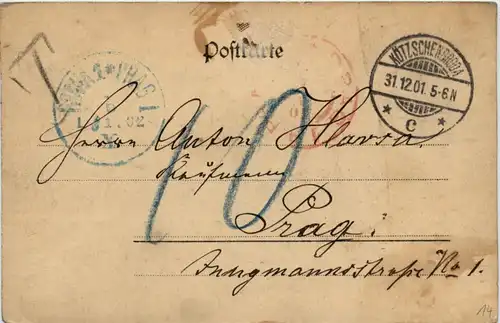 Postkarte
T
KÖTZSCHENBRODA
31.12.01. 5-6N
* c *
10
Herrn Anton Havra.
Kaufmann
Prag.
Jungmannsstraße No 1.
14